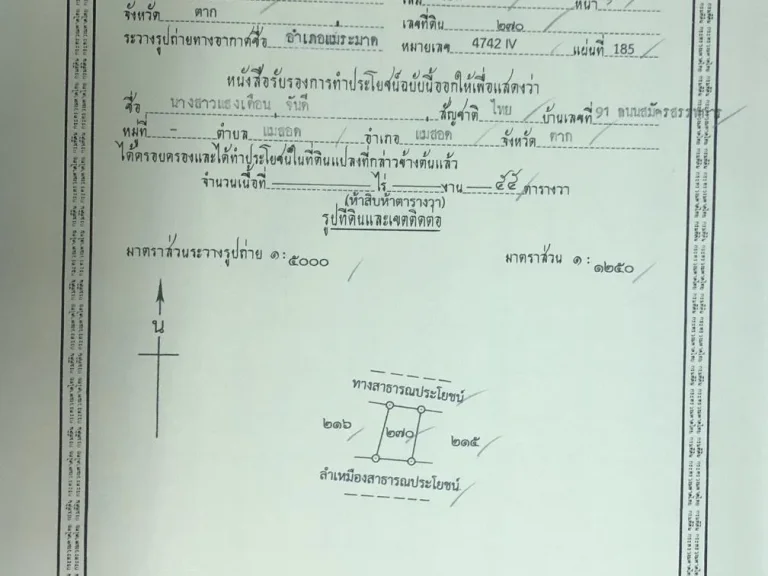 จังหวัด ตาก
เลขที่ดิน ๒๗๐
ระวางรูปถ่ายทางอากาศชื่อ อำเภอแม่ระมาด หมายเลข 4742 IV แผ่นที่ 185
หนังสือรับรองการทำประโยชน์ฉบับนี้ออกให้เพื่อแสดงว่า
ชื่อ นางสาวแสงเดือน จันดี สัญชาติ ไทย บ้านเลขที่ 91 ถนนสมัครสรรพการ
หมู่ที่ - ตำบล แม่สอด อำเภอ แม่สอด จังหวัด ตาก
ได้ครอบครองและได้ทำประโยชน์ในที่ดินแปลงที่กล่าวข้างต้นแล้ว
จำนวนเนื้อที่ ไร่ งาน ๕๕ ตารางวา
(ห้าสิบห้าตารางวา)
รูปที่ดินและเขตติดต่อ
มาตราส่วนระวางรูปถ่าย ๑: ๕๐๐๐ มาตราส่วน ๑: ๑๒๕๐
น
ทางสาธารณประโยชน์
๒๑๖ ๒๗๐ ๒๑๕
ลำเหมืองสาธารณประโยชน์